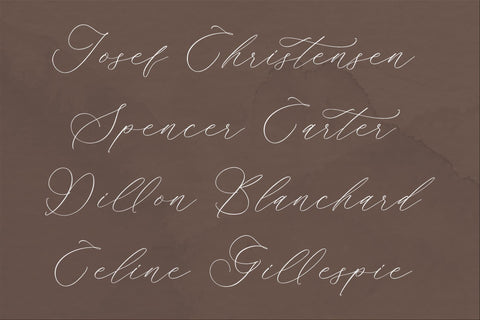 Josef Christensen
Spencer Carter
Dillon Blanchard
Celine Gillespie